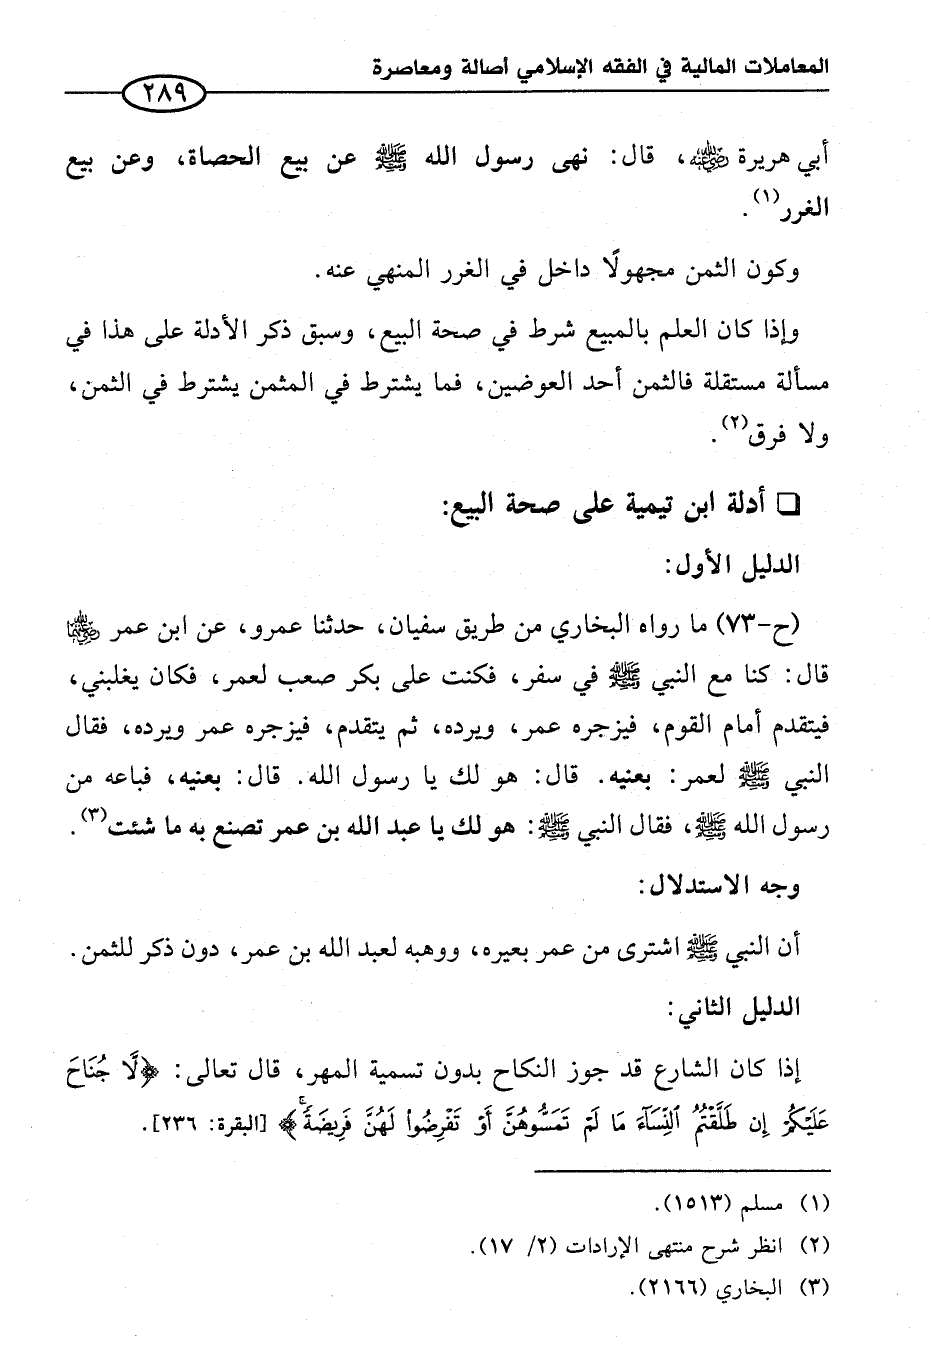 المعاملات المالية في الفقه الإسلامي أصالة ومعاصرة
٢٨٩
أبي هريرة رضي الله عنه، قال: نهى رسول الله ﷺ عن بيع الحصاة، وعن بيع
الغرر(١).
وكون الثمن مجهولًا داخل في الغرر المنهي عنه.
وإذا كان العلم بالمبيع شرط في صحة البيع، وسبق ذكر الأدلة على هذا في
مسألة مستقلة فالثمن أحد العوضين، فما يشترط في المثمن يشترط في الثمن،
ولا فرق(٢).
❑ أدلة ابن تيمية على صحة البيع:
الدليل الأول:
(ح-٧٣) ما رواه البخاري من طريق سفيان، حدثنا عمرو، عن ابن عمر رضي الله عنهما
قال: كنا مع النبي ﷺ في سفر، فكنت على بكر صعب لعمر، فكان يغلبني،
فيتقدم أمام القوم، فيزجره عمر، ويرده، ثم يتقدم، فيزجره عمر ويرده، فقال
النبي ﷺ لعمر: بعنيه. قال: هو لك يا رسول الله. قال: بعنيه، فباعه من
رسول الله ﷺ، فقال النبي ﷺ: هو لك يا عبد الله بن عمر تصنع به ما شئت(٣).
وجه الاستدلال:
أن النبي ﷺ اشترى من عمر بعيره، ووهبه لعبد الله بن عمر، دون ذكر للثمن.
الدليل الثاني:
إذا كان الشارع قد جوز النكاح بدون تسمية المهر، قال تعالى: ﴿لَّا جُنَاحَ
عَلَيْكُمْ إِن طَلَّقْتُمُ ٱلنِّسَآءَ مَا لَمْ تَمَسُّوهُنَّ أَوْ تَفْرِضُوا۟ لَهُنَّ فَرِيضَةً ۚ﴾ [البقرة: ٢٣٦].
(١) مسلم (١٥١٣).
(٢) انظر شرح منتهى الإرادات (٢/ ١٧).
(٣) البخاري (٢١٦٦).